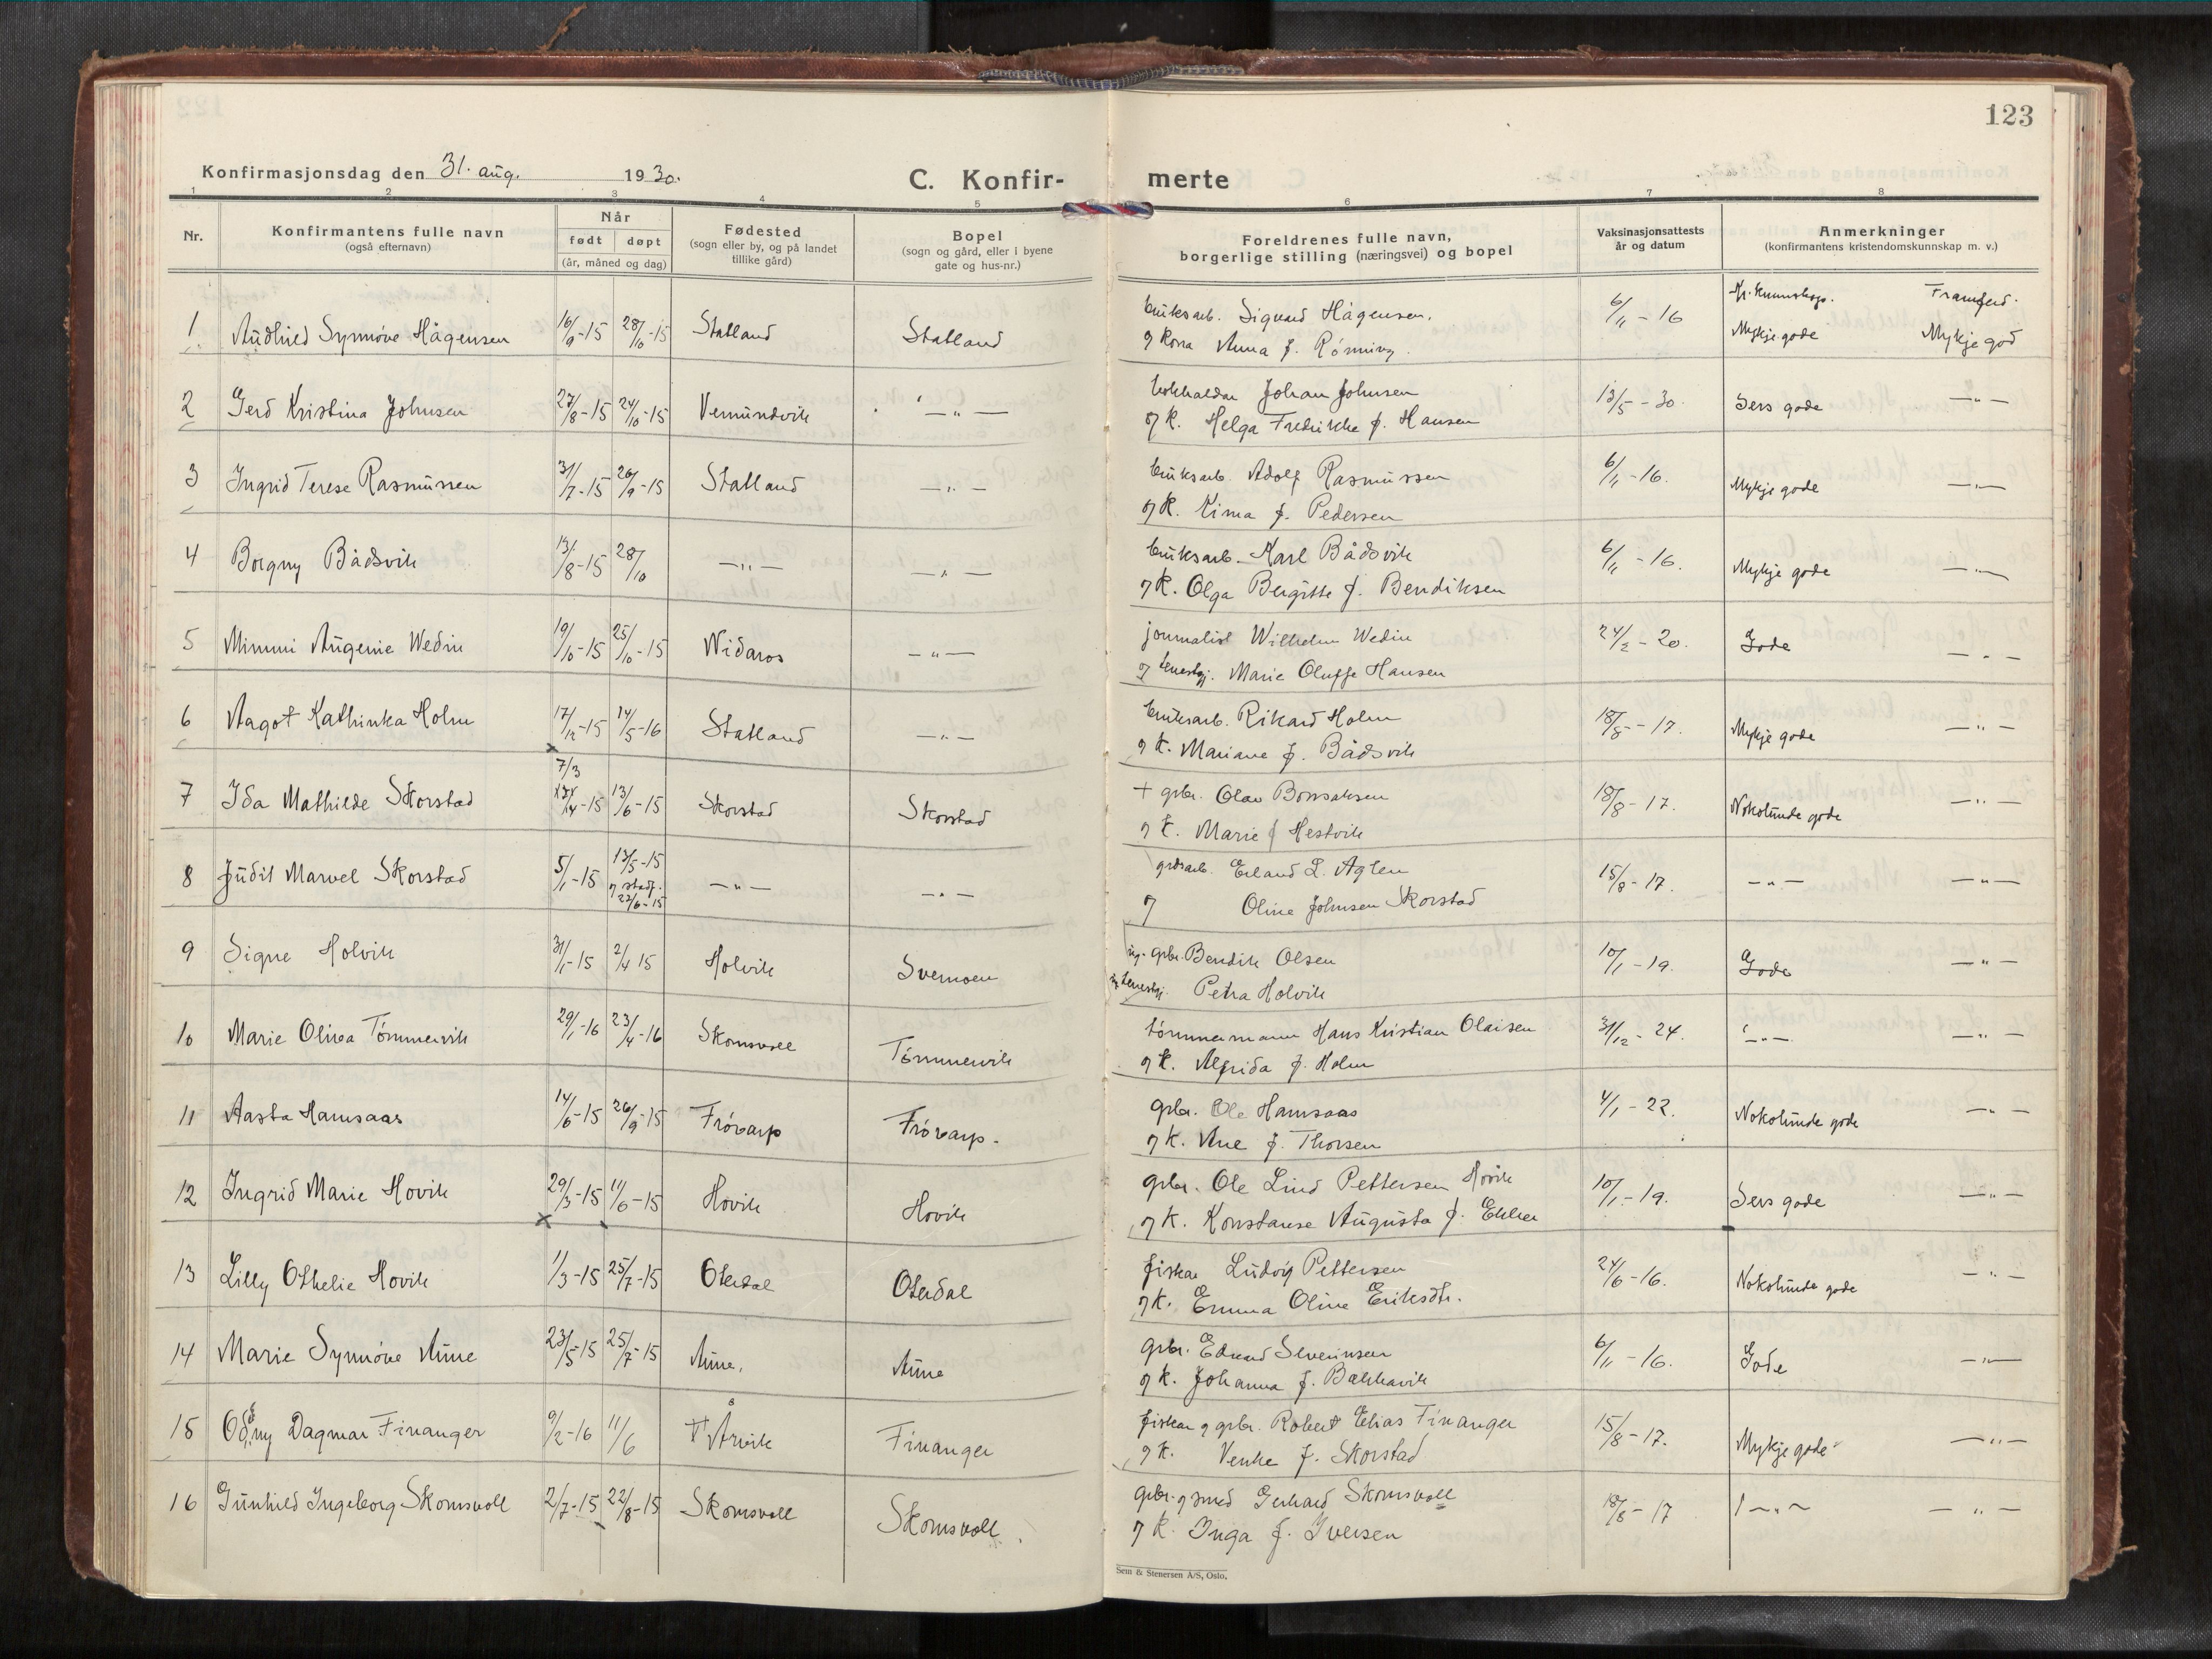 123
Konfirmasjonsdag den 31. aug. 1930.
C. Konfir-
merte
1 2 3 4 5 6 7 8
Nr.
Konfirmantens fulle navn
(også efternavn)
Når
født døpt
(år, måned og dag)
Fødested
(sogn eller by, og på landet
tillike gård)
Bopel
(sogn og gård, eller i byene
gate og hus-nr.)
Foreldrenes fulle navn,
borgerlige stilling (næringsvei) og bopel
Vaksinasjonsattests
år og datum
Anmerkninger
(konfirmantens kristendomskunnskap m. v.)
Kr. kunnskap. Framferd.
1 Audhild Synnöve Hågensen 16/9-15 28/10-15 Statland Statland bruksarb. Sigvard Hågensen. 6/11-16 Mykje gode Mykje god
og kona Anna f. Rönning.
2 Gerd Kristina Johnsen 27/8-15 24/10-15 Vemundvik —"— bokhaldar Johan Johnsen 13/5-30. Sers gode —"—
og k. Helga Fredrikke f. Hansen
3 Ingrid Terese Rasmussen 31/7-15 26/9-15 Statland —"— bruksarb. Adolf Rasmussen 6/11-16. Mykje gode —"—
og k. Kima f. Pedersen
4 Borgny Bådsvik 13/8-15 28/10 —"— —"— bruksarb. Karl Bådsvik 6/11-16. Mykje gode —"—
og k. Olga Bergitte f. Bendiksen
5 Mimmi Augenie Wedin 19/10-15 25/10-15 Nidaros —"— journalist Wilhelm Wedin 24/2-20. Gode —"—
og tenestgj. Marie Oluffe Hansen
6 Aagot Kathinka Holm 17/12-15 14/5-16 Statland —"— bruksarb. Rikard Holm 18/8-17. Mykje gode —"—
og k. Mariane f. Bådsvik
7/3
7 Ida Mathilde Skorstad 4-15 13/6-15 Skorstad Skorstad + gbr. Olav Bonsaksen 18/8-17. Nokolunde gode —"—
og k. Marie f Hestvik
8 Judit Marvel Skorstad 5/1-15 13/5-15 —"— —"— grdsarb. Erland L. Aglen 15/8-17. —"— —"—
og stadf. 22/6-15
og Oline Johnsen Skorstad
9 Signe Holvik 31/1-15 2/4 15 Holvik Svemoen ug. gbr. Bendik Olsen 10/1-19. Gode —"—
ug. tenestgj. Petra Holvik
10 Marie Olivea Tömmervik 29/1-16 23/4-16 Skomsvoll Tömmervik tömmermann Hans Kristian Olaisen 31/12-24. —"— —"—
og k. Alfrida f. Holm
11 Aasta Hamsaas 14/6-15 26/9-15 Frövarp Frövarp. gbr. Ole Hamsaas 4/1-22. Nokolunde gode —"—
og k. Ane f. Thorsen
12 Ingrid Marie Hovik 29/3-15 11/6-15 Hovik Hovik gbr. Ole Lind Pettersen Hovik 10/1-19. Sers gode —"—
og k. Konstanse Augusta f. Ekker
13 Lilly Othelie Hovik 1/3-15 25/7-15 Oterdal Oterdal fiskar Ludvig Pettersen 24/6-16. Nokolunde gode —"—
og k. Emma Oline Eriksdtr.
14 Marie Synnöve Aune 23/5-15 25/7-15 Aune. Aune gbr. Edvard Severinsen 6/11-16. Gode —"—
og k. Johanna f. Bakkavik
15 Oddny Dagmar Finanger 9/2-16 11/6 Årvik Finanger fiskar og gbr. Robert Elias Finanger 15/8-17. Mykje gode —"—
og k. Venke f. Skorstad
16 Gunhild Ingeborg Skomsvoll 2/7-15 22/8-15 Skomsvoll Skomsvoll gbr. og smed Gerhard Skomsvoll 18/8-17 —"— —"—
og k. Inga f. Iversen
Sem & Stenersen A/S, Oslo.